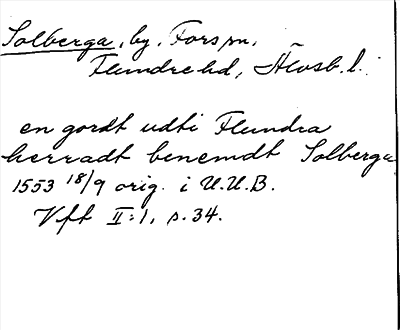 Solberga, by, Fors sn,
Flundre hd, Älvsb. l.
en gordt udti Flundra
herradt benemdt Solberga
1553 18/9 orig. i U.U.B.
Vft II:1, s. 34.